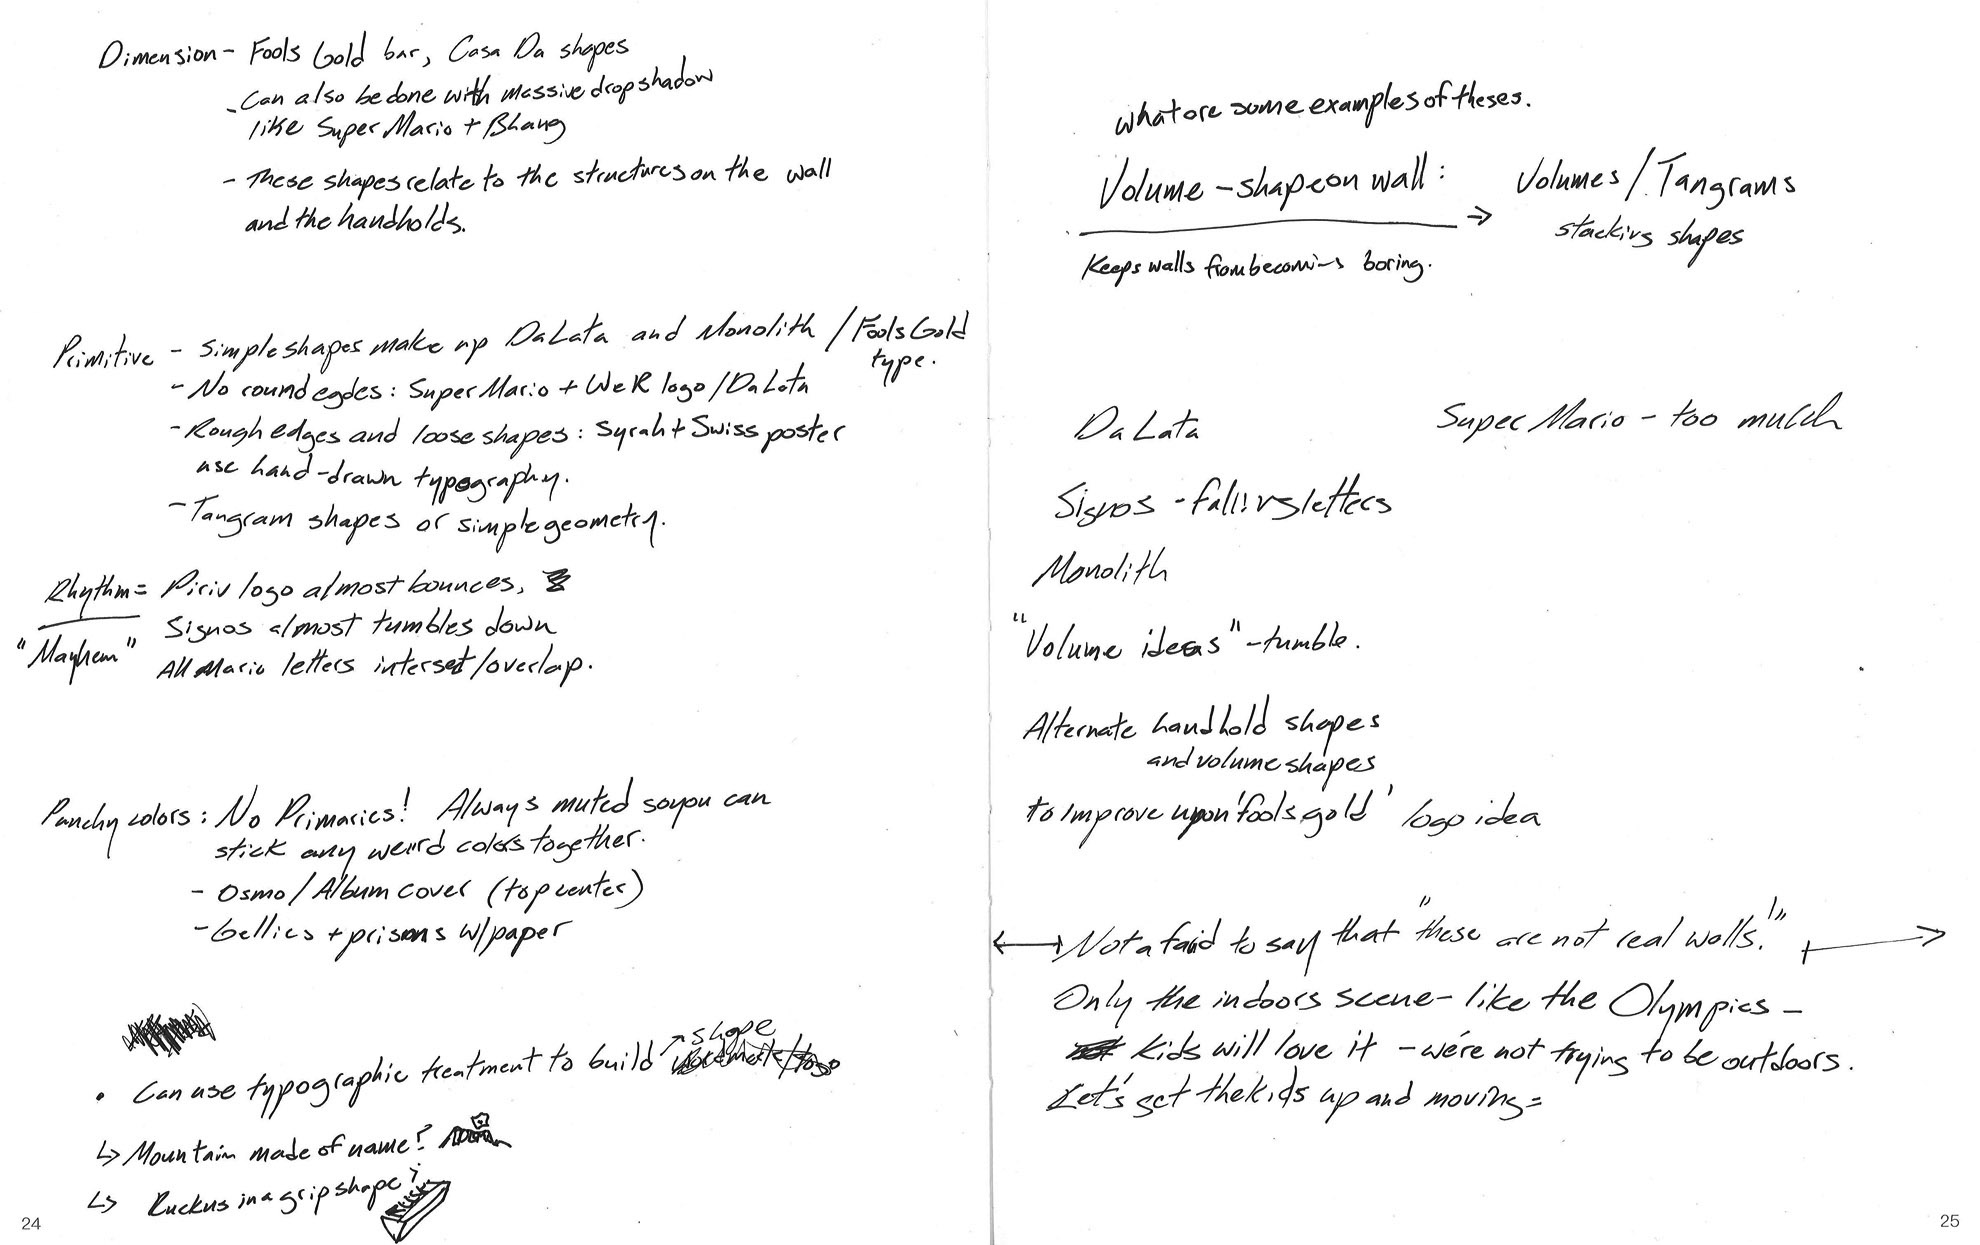 Dimension - Fools Gold bar, Casa Da shapes
- Can also be done with massive dropshadow
like Super Mario + Bhang
- These shapes relate to the structures on the wall
and the handholds.
Primitive - Simple shapes make up DaLata and Monolith / Fools Gold
type.
- No round egdes: Super Mario + WeR logo/DaLata
- Rough edges and loose shapes: Syrah + Swiss poster
use hand-drawn typography.
- Tangram shapes or simple geometry.
Rhythm = Piriv logo almost bounces,
Signos almost tumbles down
"Mayhem"
All Mario letters interset/overlap.
Punchy colors: No Primaries! Always muted so you can
stick any weird colors together.
- Osmo/Album cover (top center)
- Gellies + prisms w/paper
shape
• Can use typographic treatment to build wordmark/logo
↳ Mountain made of name?
↳ Ruckus in a grip shape?
24
what are some examples of theses.
Volume - shape on wall: → Volumes/Tangrams
stacking shapes
Keeps walls from becoming boring.
DaLata
Super Mario - too mutch
Signos - falling letters
Monolith
"Volume ideas" - tumble.
Alternate handhold shapes
and volume shapes
to improve upon 'fools gold' logo idea
← Not afraid to say that "these are not real walls!" →
Only the indoors scene - like the Olympics -
kids will love it - we're not trying to be outdoors.
Let's get the kids up and moving =
25